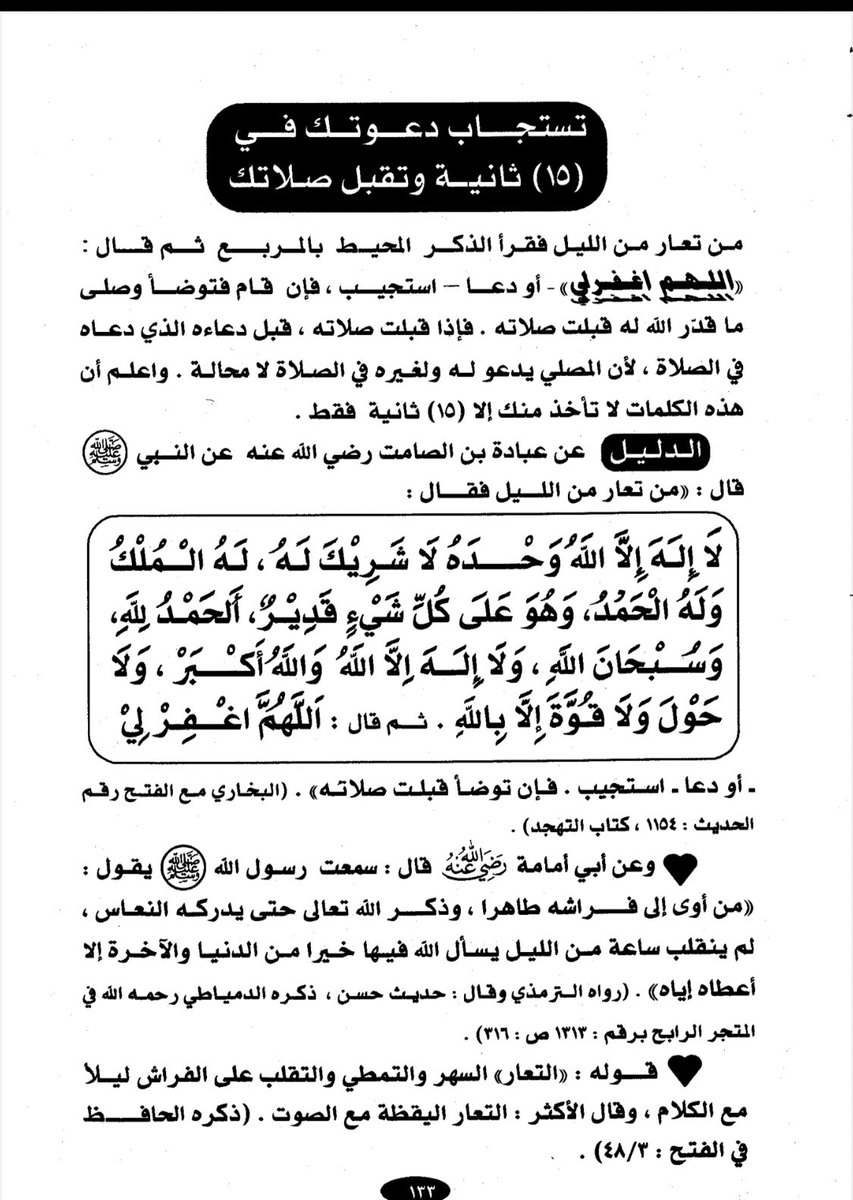 تستجاب دعوتك في
(١٥) ثانية وتقبل صلاتك
من تعار من الليل فقرأ الذكر المحيط بالمربع ثم قال :
«اللهم اغفرلي» - أو دعا – استجيب ، فإن قام فتوضأ وصلى
ما قدّر الله له قبلت صلاته . فإذا قبلت صلاته ، قبل دعاءه الذي دعاه
في الصلاة ، لأن المصلي يدعو له ولغيره في الصلاة لا محالة . واعلم أن
هذه الكلمات لا تأخذ منك إلا (١٥) ثانية فقط .
الدليل عن عبادة بن الصامت رضي الله عنه عن النبي ﷺ
قال : «من تعار من الليل فقال :
لَا إِلَهَ إِلَّا اللَّهُ وَحْدَهُ لَا شَرِيْكَ لَهُ ، لَهُ الْمُلْكُ
وَلَهُ الْحَمْدُ، وَهُوَ عَلَى كُلِّ شَيْءٍ قَدِيْرٌ، اَلْحَمْدُ لِلَّهِ،
وَسُبْحَانَ اللَّهِ ، وَلَا إِلَهَ اِلَّا اللَّهُ وَاللَّهُ أَكْبَرْ ، وَلَا
حَوْلَ وَلَا قُوَّةَ إِلَّا بِاللَّهِ . ثم قال : اَللَّهُمَّ اغْفِرْ لِيْ
- أو دعا - استجيب . فإن توضأ قبلت صلاته» . (البخاري مع الفتح رقم
الحديث : ١١٥٤ ، كتاب التهجد) .
وعن أبي أمامة رَضِيَ اللَّهُ عَنْهُ قال : سمعت رسول الله ﷺ يقول :
«من أوى إلى فراشه طاهرا ، وذكر الله تعالى حتى يدركه النعاس ،
لم ينقلب ساعة من الليل يسأل الله فيها خيرا من الدنيا والآخرة إلا
أعطاه إياه» . (رواه الترمذي وقال : حديث حسن ، ذكره الدمياطي رحمه الله في
المتجر الرابح برقم : ١٣١٣ ص : ٣١٦) .
قوله : «التعار» السهر والتمطي والتقلب على الفراش ليلأ
مع الكلام ، وقال الأكثر : التعار اليقظة مع الصوت . (ذكره الحافظ
في الفتح : ٤٨/٣) .
١٣٣